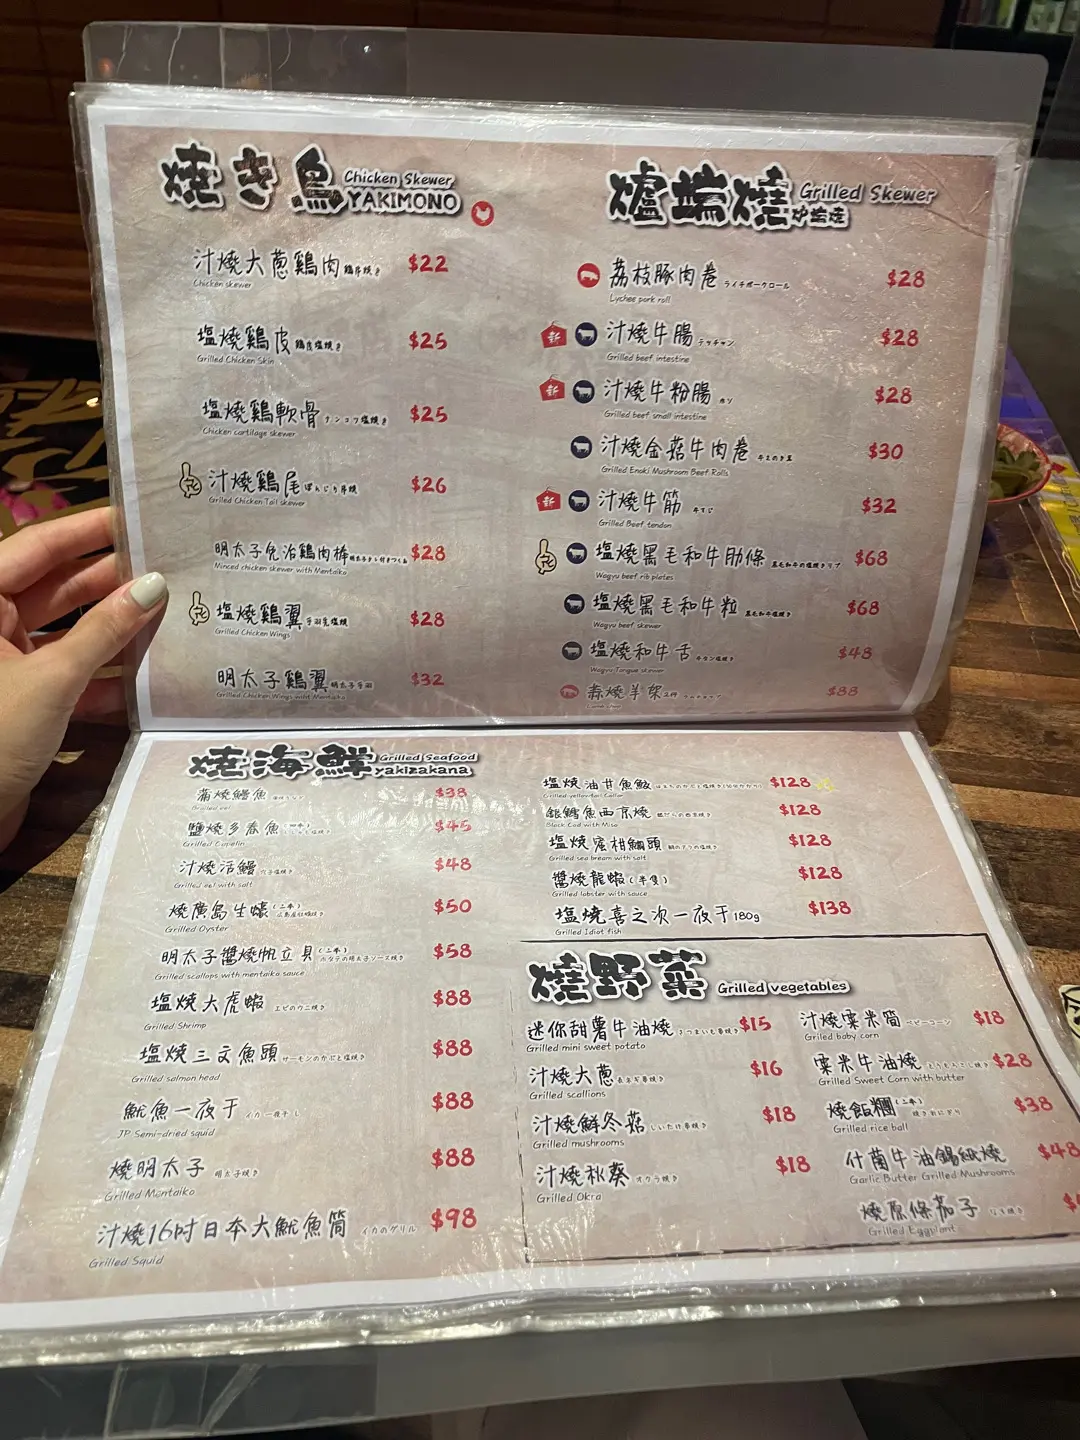 燒き鳥 Chicken Skewer
YAKIMONO
汁燒大蔥鷄肉 $22
Chicken skewer
塩燒鷄皮 鶏皮塩焼き $25
Grilled Chicken Skin
塩燒鷄軟骨 ナンコツ塩焼き $25
Chicken cartilage skewer
汁燒鷄尾 ぼんじり串焼 $26
Grilled Chicken Tail skewer
明太子免治鷄肉棒 $28
Minced chicken skewer with Mentaiko
塩燒鷄翼 手羽先塩焼 $28
Grilled Chicken Wings
明太子鷄翼 明太子手羽 $32
Grilled Chicken Wings with Mentaiko
爐端燒 Grilled Skewer
炉端焼
荔枝豚肉卷 ライチポークロール $28
Lychee pork roll
新 汁燒牛腸 テッチャン $28
Grilled beef intestine
新 汁燒牛粉腸 ホソ $28
Grilled beef small intestine
汁燒金菇牛肉卷 $30
Grilled Enoki Mushroom Beef Rolls
新 汁燒牛筋 牛すじ $32
Grilled Beef tendon
塩燒黑毛和牛肋條 黒毛和牛の塩焼きリブ $68
Wagyu beef rib plates
塩燒黑毛和牛粒 黒毛和牛塩焼き $68
Wagyu beef skewer
塩燒和牛舌 牛タン塩焼き $48
Wagyu Tongue skewer
燒羊架 $88
燒海鮮 Grilled Seafood
yakizakana
蒲燒鰻魚 $38
Broiled eel
鹽燒多春魚 $45
Grilled Capelin
汁燒活鰻 穴子塩焼き $48
Grilled eel with salt
燒廣島生蠔 (二串) 広島産牡蠣焼き $50
Grilled Oyster
明太子醬燒帆立貝 (二串) ホタテの明太子ソース焼き $58
Grilled scallops with mentaiko sauce
塩燒大虎蝦 エビのウニ焼き $88
Grilled Shrimp
塩燒三文魚頭 サーモンのかぶと塩焼き $88
Grilled salmon head
魷魚一夜干 イカ一夜干し $88
JP Semi-dried squid
燒明太子 明太子焼き $88
Grilled Mentaiko
汁燒16吋日本大魷魚筒 イカのグリル $98
Grilled Squid
塩燒油甘魚鮫 $128
Grilled yellowtail Collar
銀鱈魚西京燒 銀だらの西京焼き $128
Black Cod with Miso
塩燒蜜柑鯛頭 鯛のアラの塩焼き $128
Grilled sea bream with salt
醬燒龍蝦(半隻) $128
Grilled lobster with sauce
塩燒喜之次一夜干180g $138
Grilled Idiot fish
燒野菜 Grilled vegetables
迷你甜薯牛油燒 さつまいも串焼き $15
Grilled mini sweet potato
汁燒大蔥 長ネギ串焼き $16
Grilled scallions
汁燒鮮冬菇 しいたけ串焼き $18
Grilled mushrooms
汁燒秋葵 オクラ焼き $18
Grilled Okra
汁燒粟米筒 ベビーコーン $18
Grilled baby corn
粟米牛油燒 とうもろこし焼き $28
Grilled Sweet Corn with butter
燒飯糰 (二串) 焼きおにぎり $38
Grilled rice ball
什菌牛油錫紙燒 $48
Garlic Butter Grilled Mushrooms
燒原條茄子 なす焼き
Grilled Eggplant